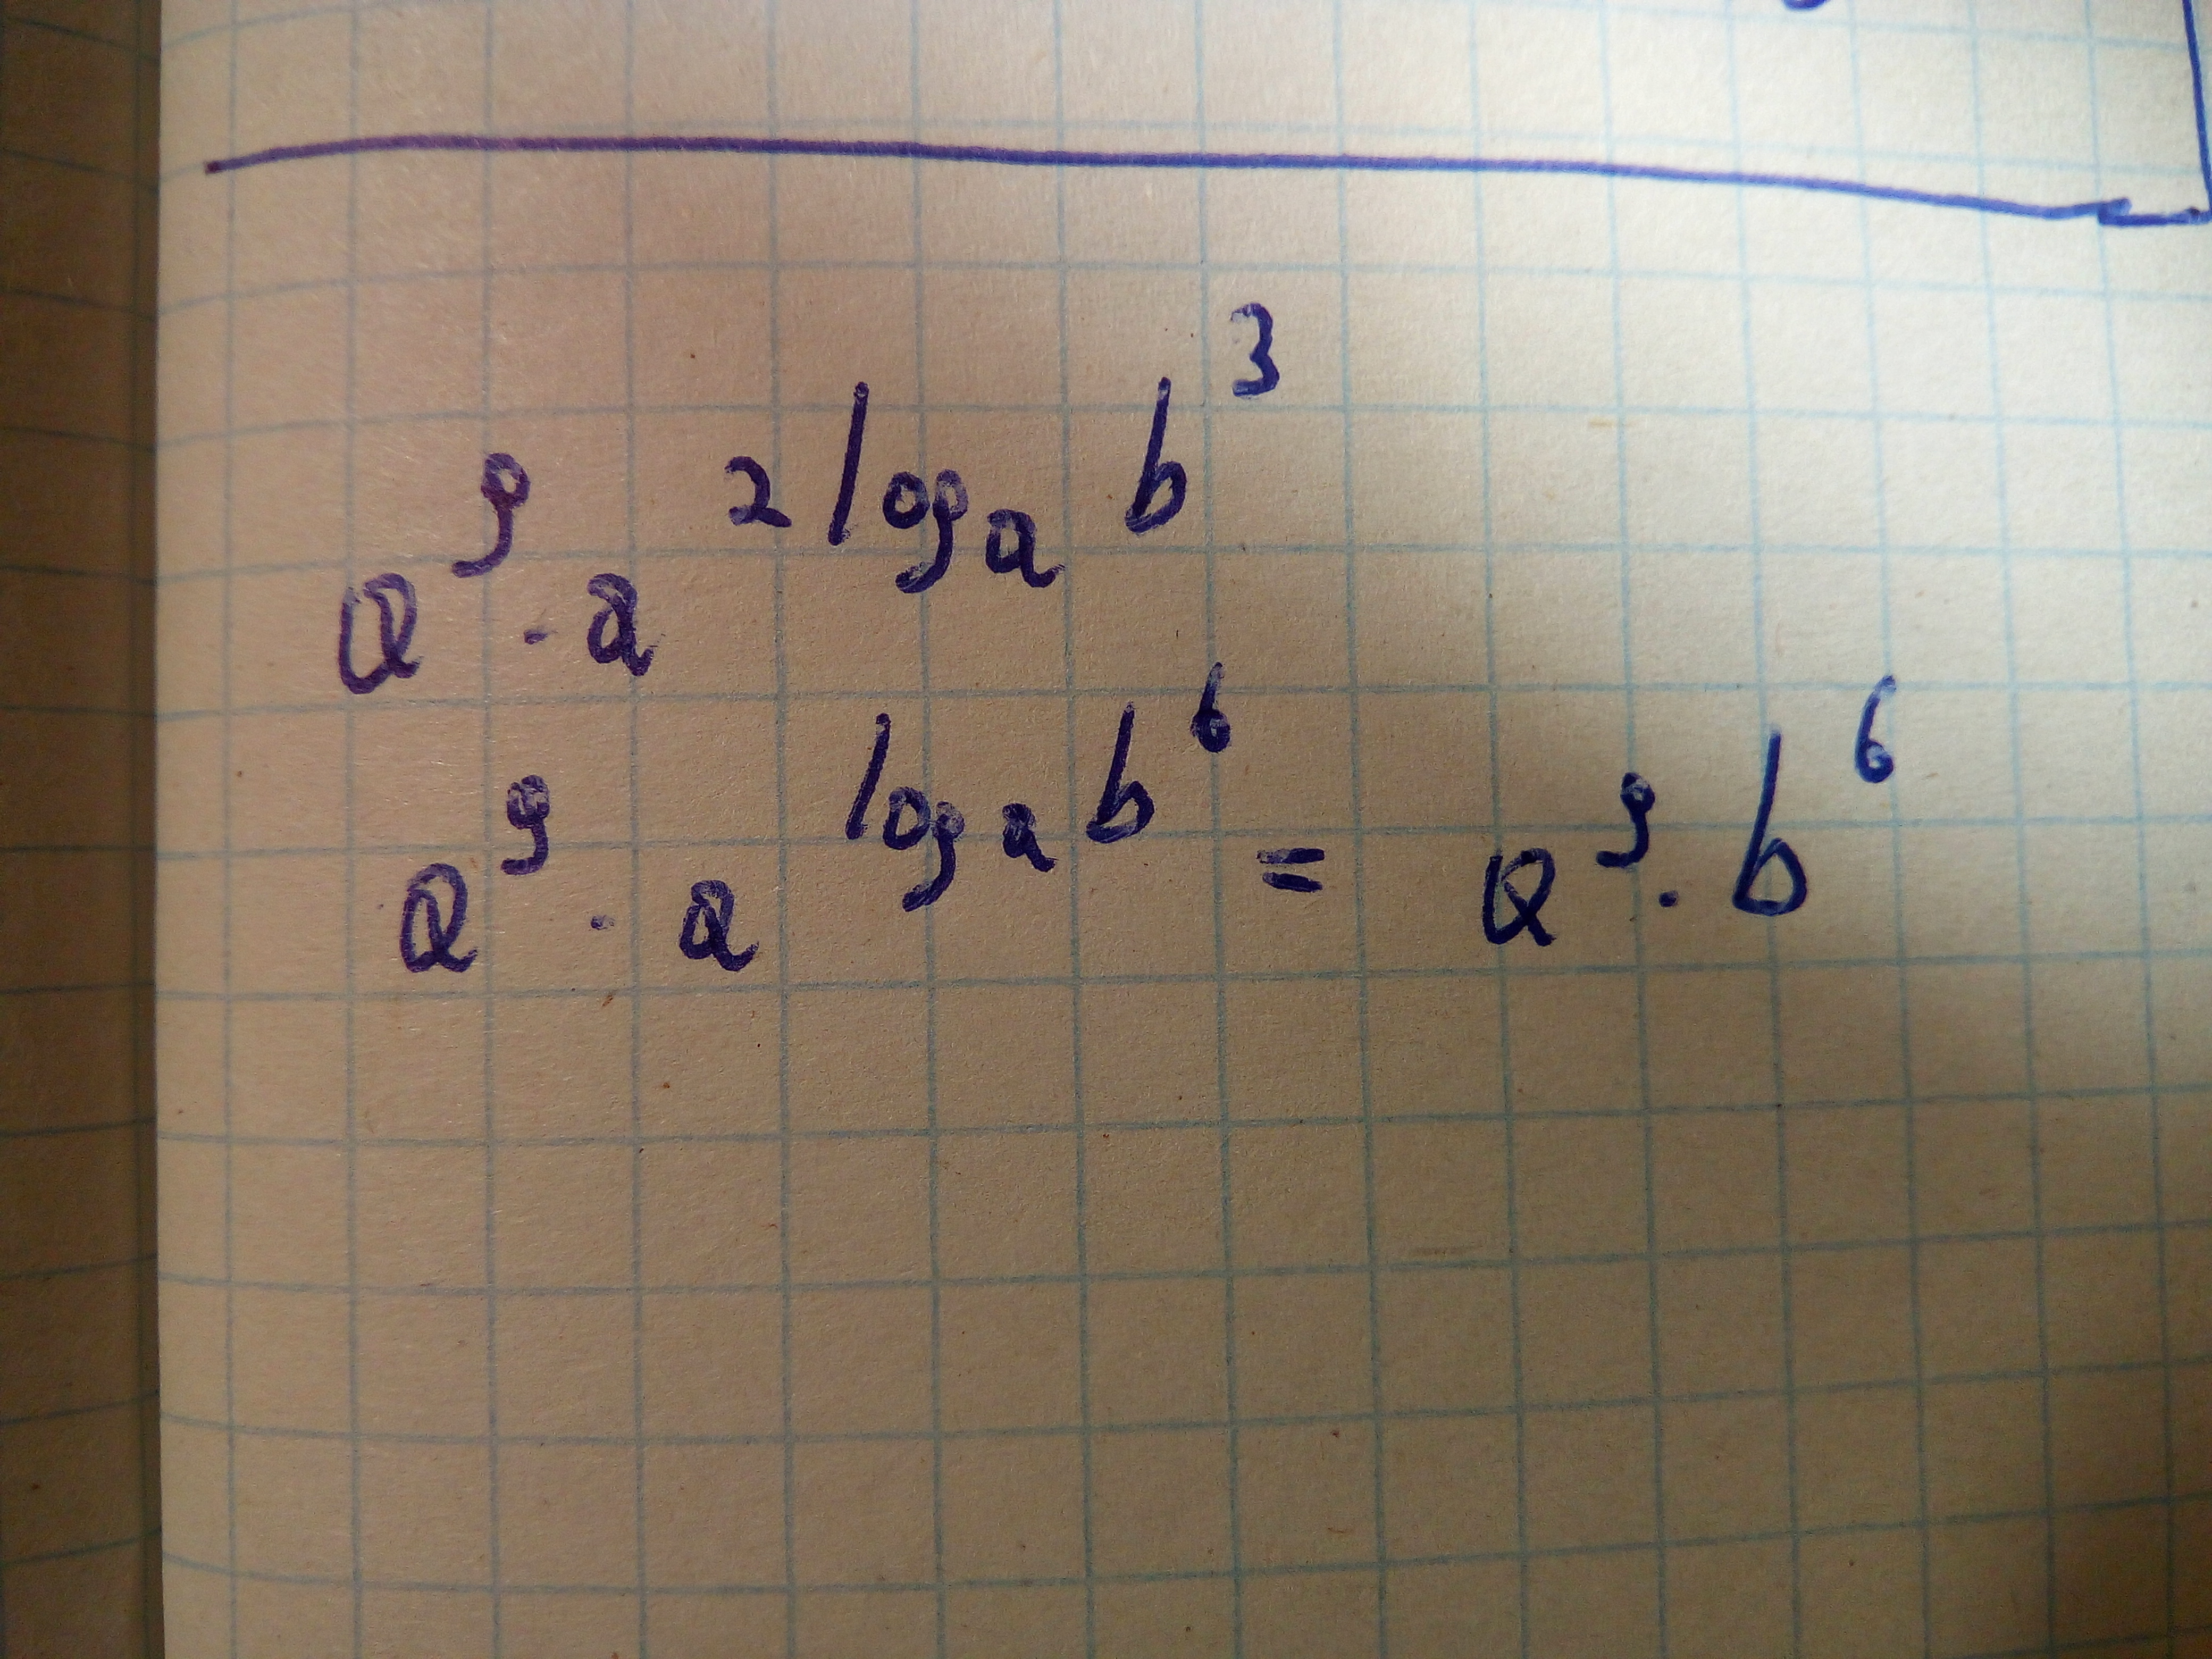 a⁹ · a^(2 log_a b³)
a⁹ · a^(log_a b⁶) = a⁹ · b⁶